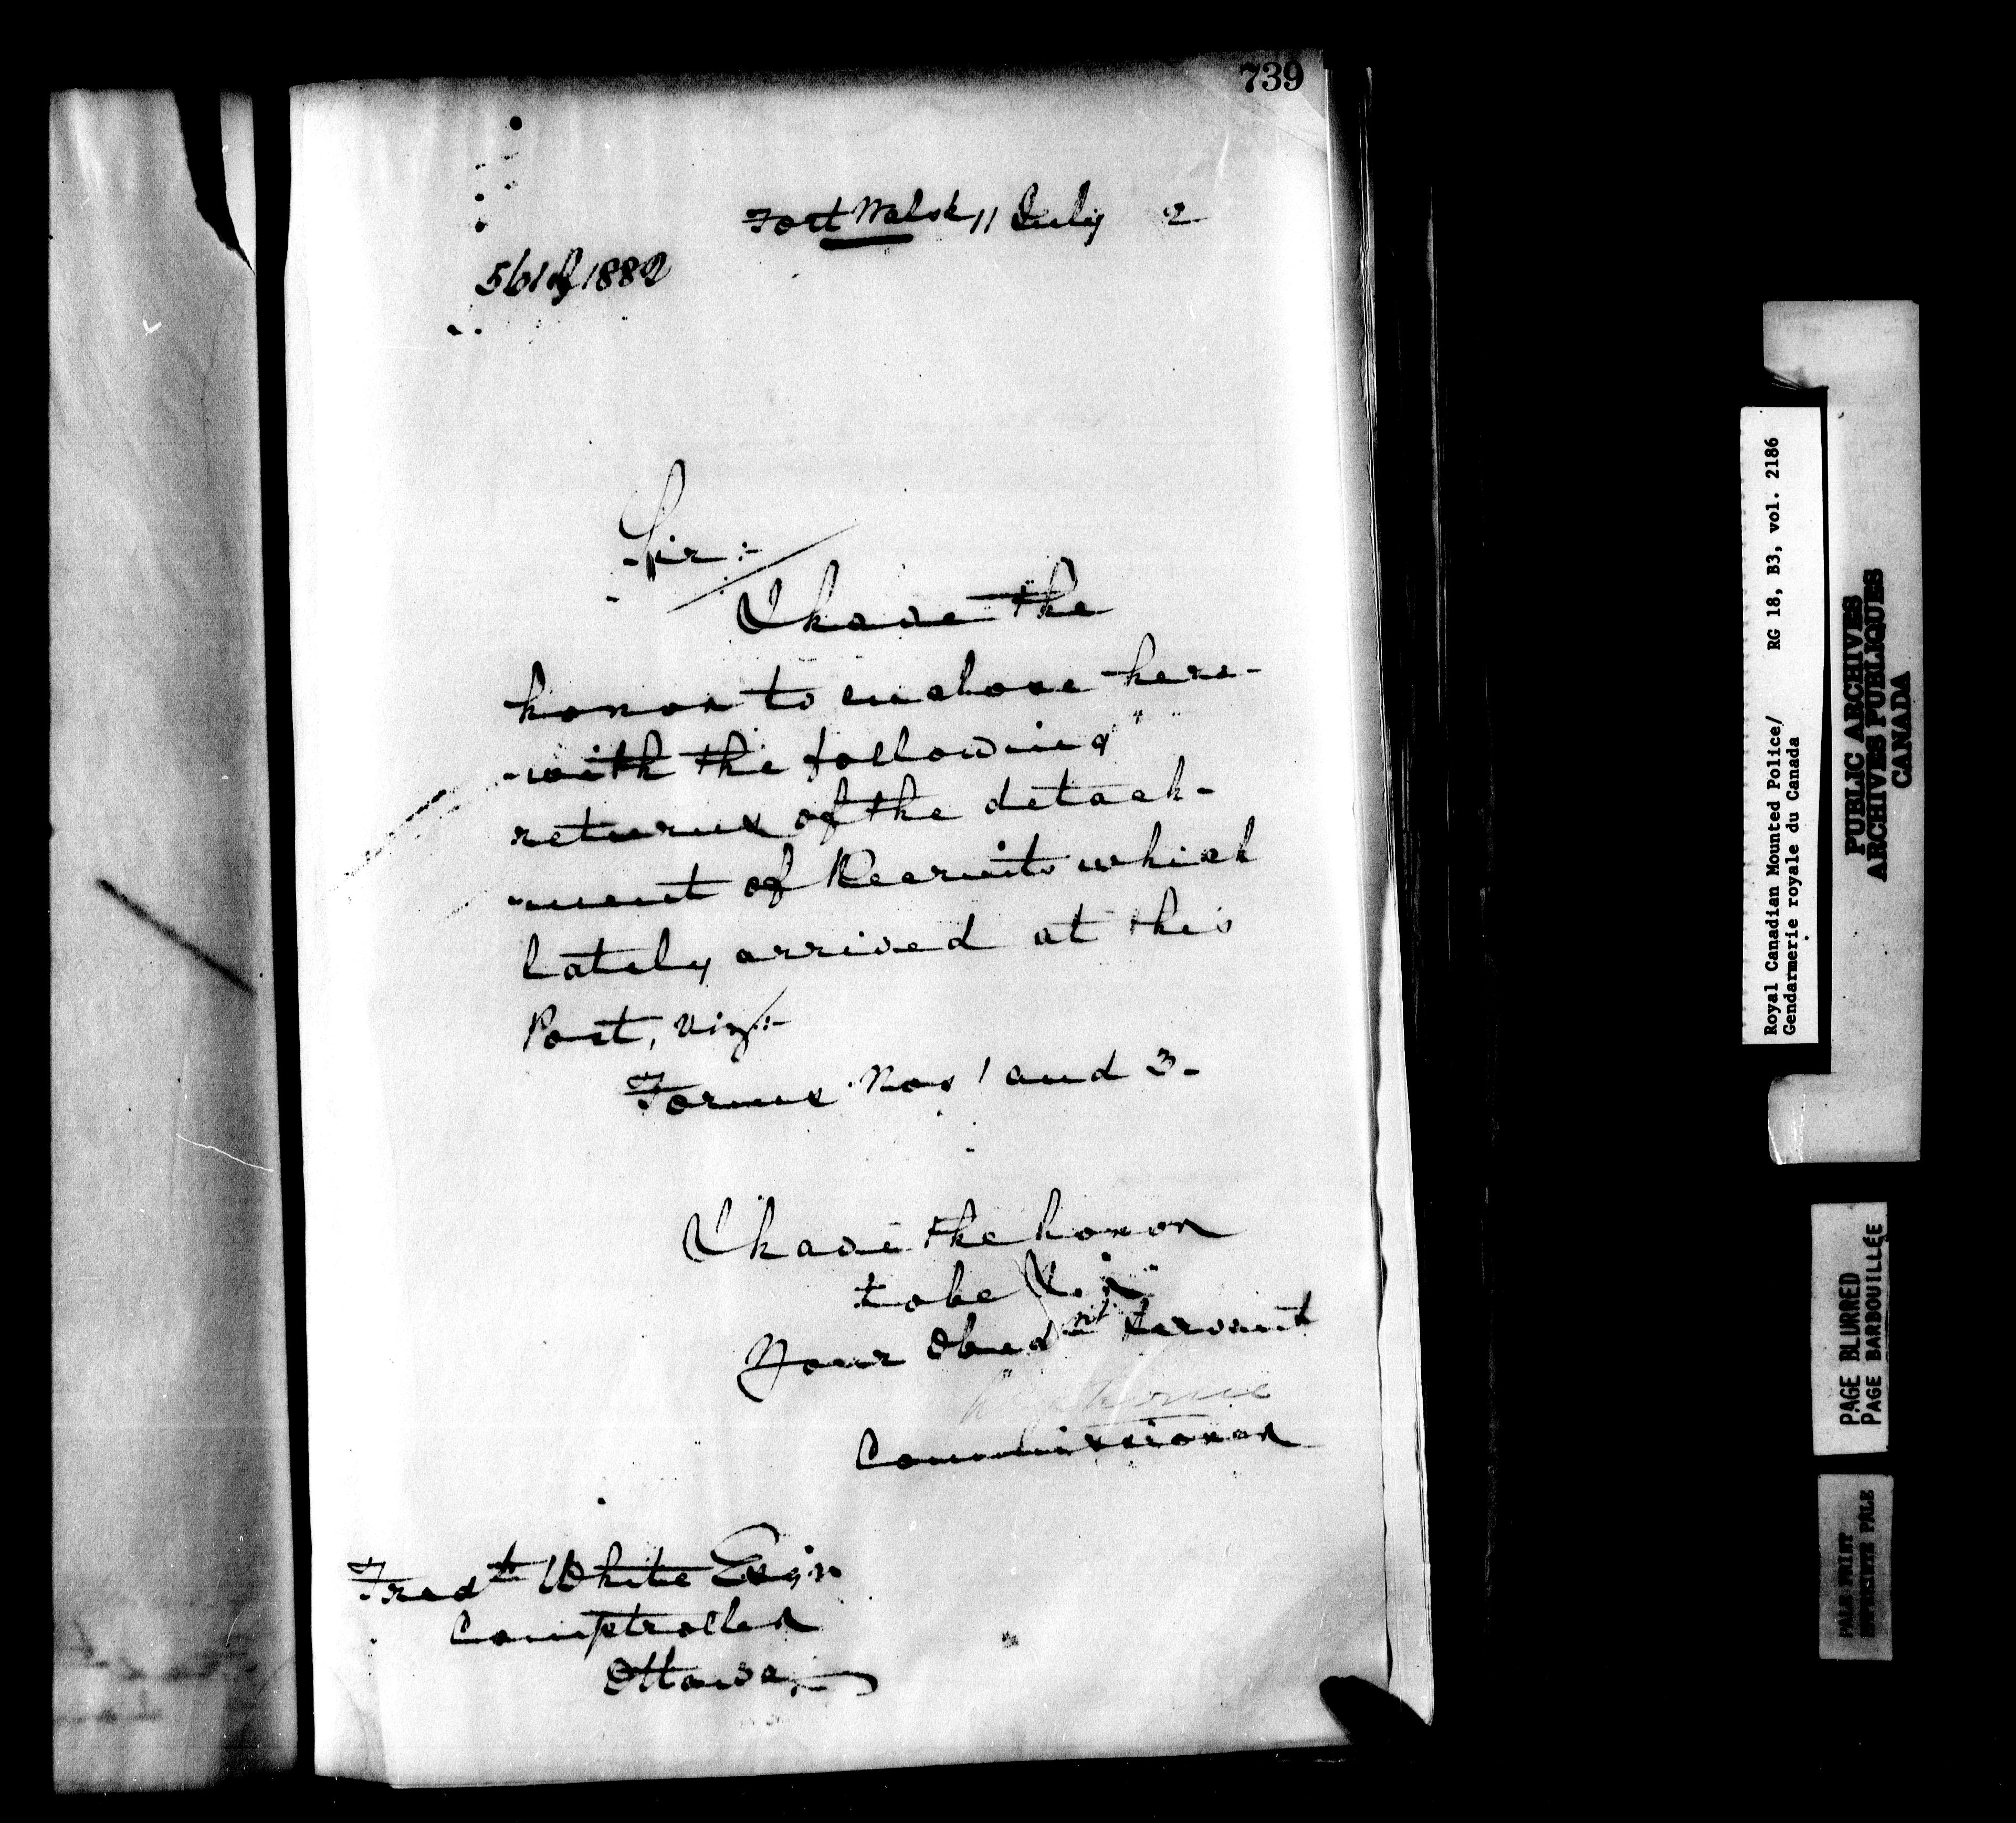 739
Fort Walsh 11 July 2
561 of 1882
Sir:-
I have the
honor to enclose here-
-with the following
returns of the detach-
-ment of Recruits which
lately arrived at this
Post, viz:-
Forms Nos 1 and 3-
I have the honor
to be Sir
Your Obednt Servant
Commissioner
Fredk White Esqr
Comptroller
Ottawa
Royal Canadian Mounted Police/ RG 18, B3, vol. 2186
Gendarmerie royale du Canada
PUBLIC ARCHIVES
ARCHIVES PUBLIQUES
CANADA
PAGE BLURRED
PAGE BARBOUILLÉE
PALE PRINT
PALE